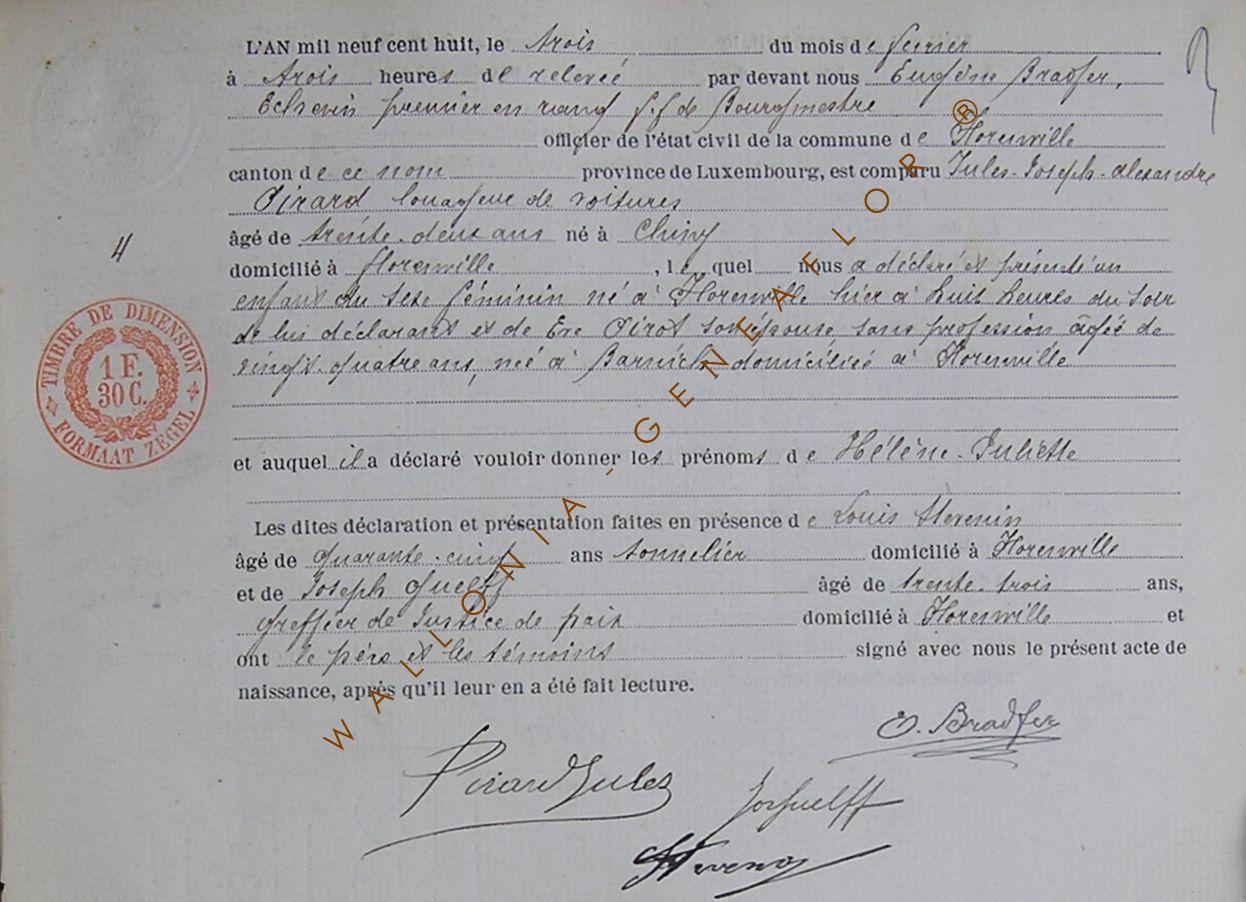 L'AN mil neuf cent huit, le trois du mois de février
à trois heures de relevée par devant nous Eugène Bradfer,
Echevin premier en rang f.f. de Bourgmestre
officier de l'état civil de la commune de Florenville
canton de ce nom province de Luxembourg, est comparu Jules-Joseph-Alexandre
Pirard louageur de voitures
âgé de trente-deux ans né à Chiny
4
domicilié à Florenville, lequel nous a déclaré et présenté un
enfant du sexe féminin né à Florenville hier à huit heures du soir
de lui déclarant et de Eve Pirot son épouse sans profession âgée de
vingt-quatre ans, née à Barnich domiciliée à Florenville
TIMBRE DE DIMENSION
1 F.
30 C.
FORMAAT ZEGEL
et auquel il a déclaré vouloir donner les prénoms de Hélène-Juliette
Les dites déclaration et présentation faites en présence de Louis
âgé de quarante-cinq ans tonnelier domicilié à Florenville
et de Joseph Guelff âgé de trente-trois ans,
greffier de Justice de paix domicilié à Florenville et
ont le père et les témoins signé avec nous le présent acte de
naissance, après qu'il leur en a été fait lecture.
E. Bradfer
Pirard Jules
Jos Guelff
WALLONIA-GENEAFLOR®